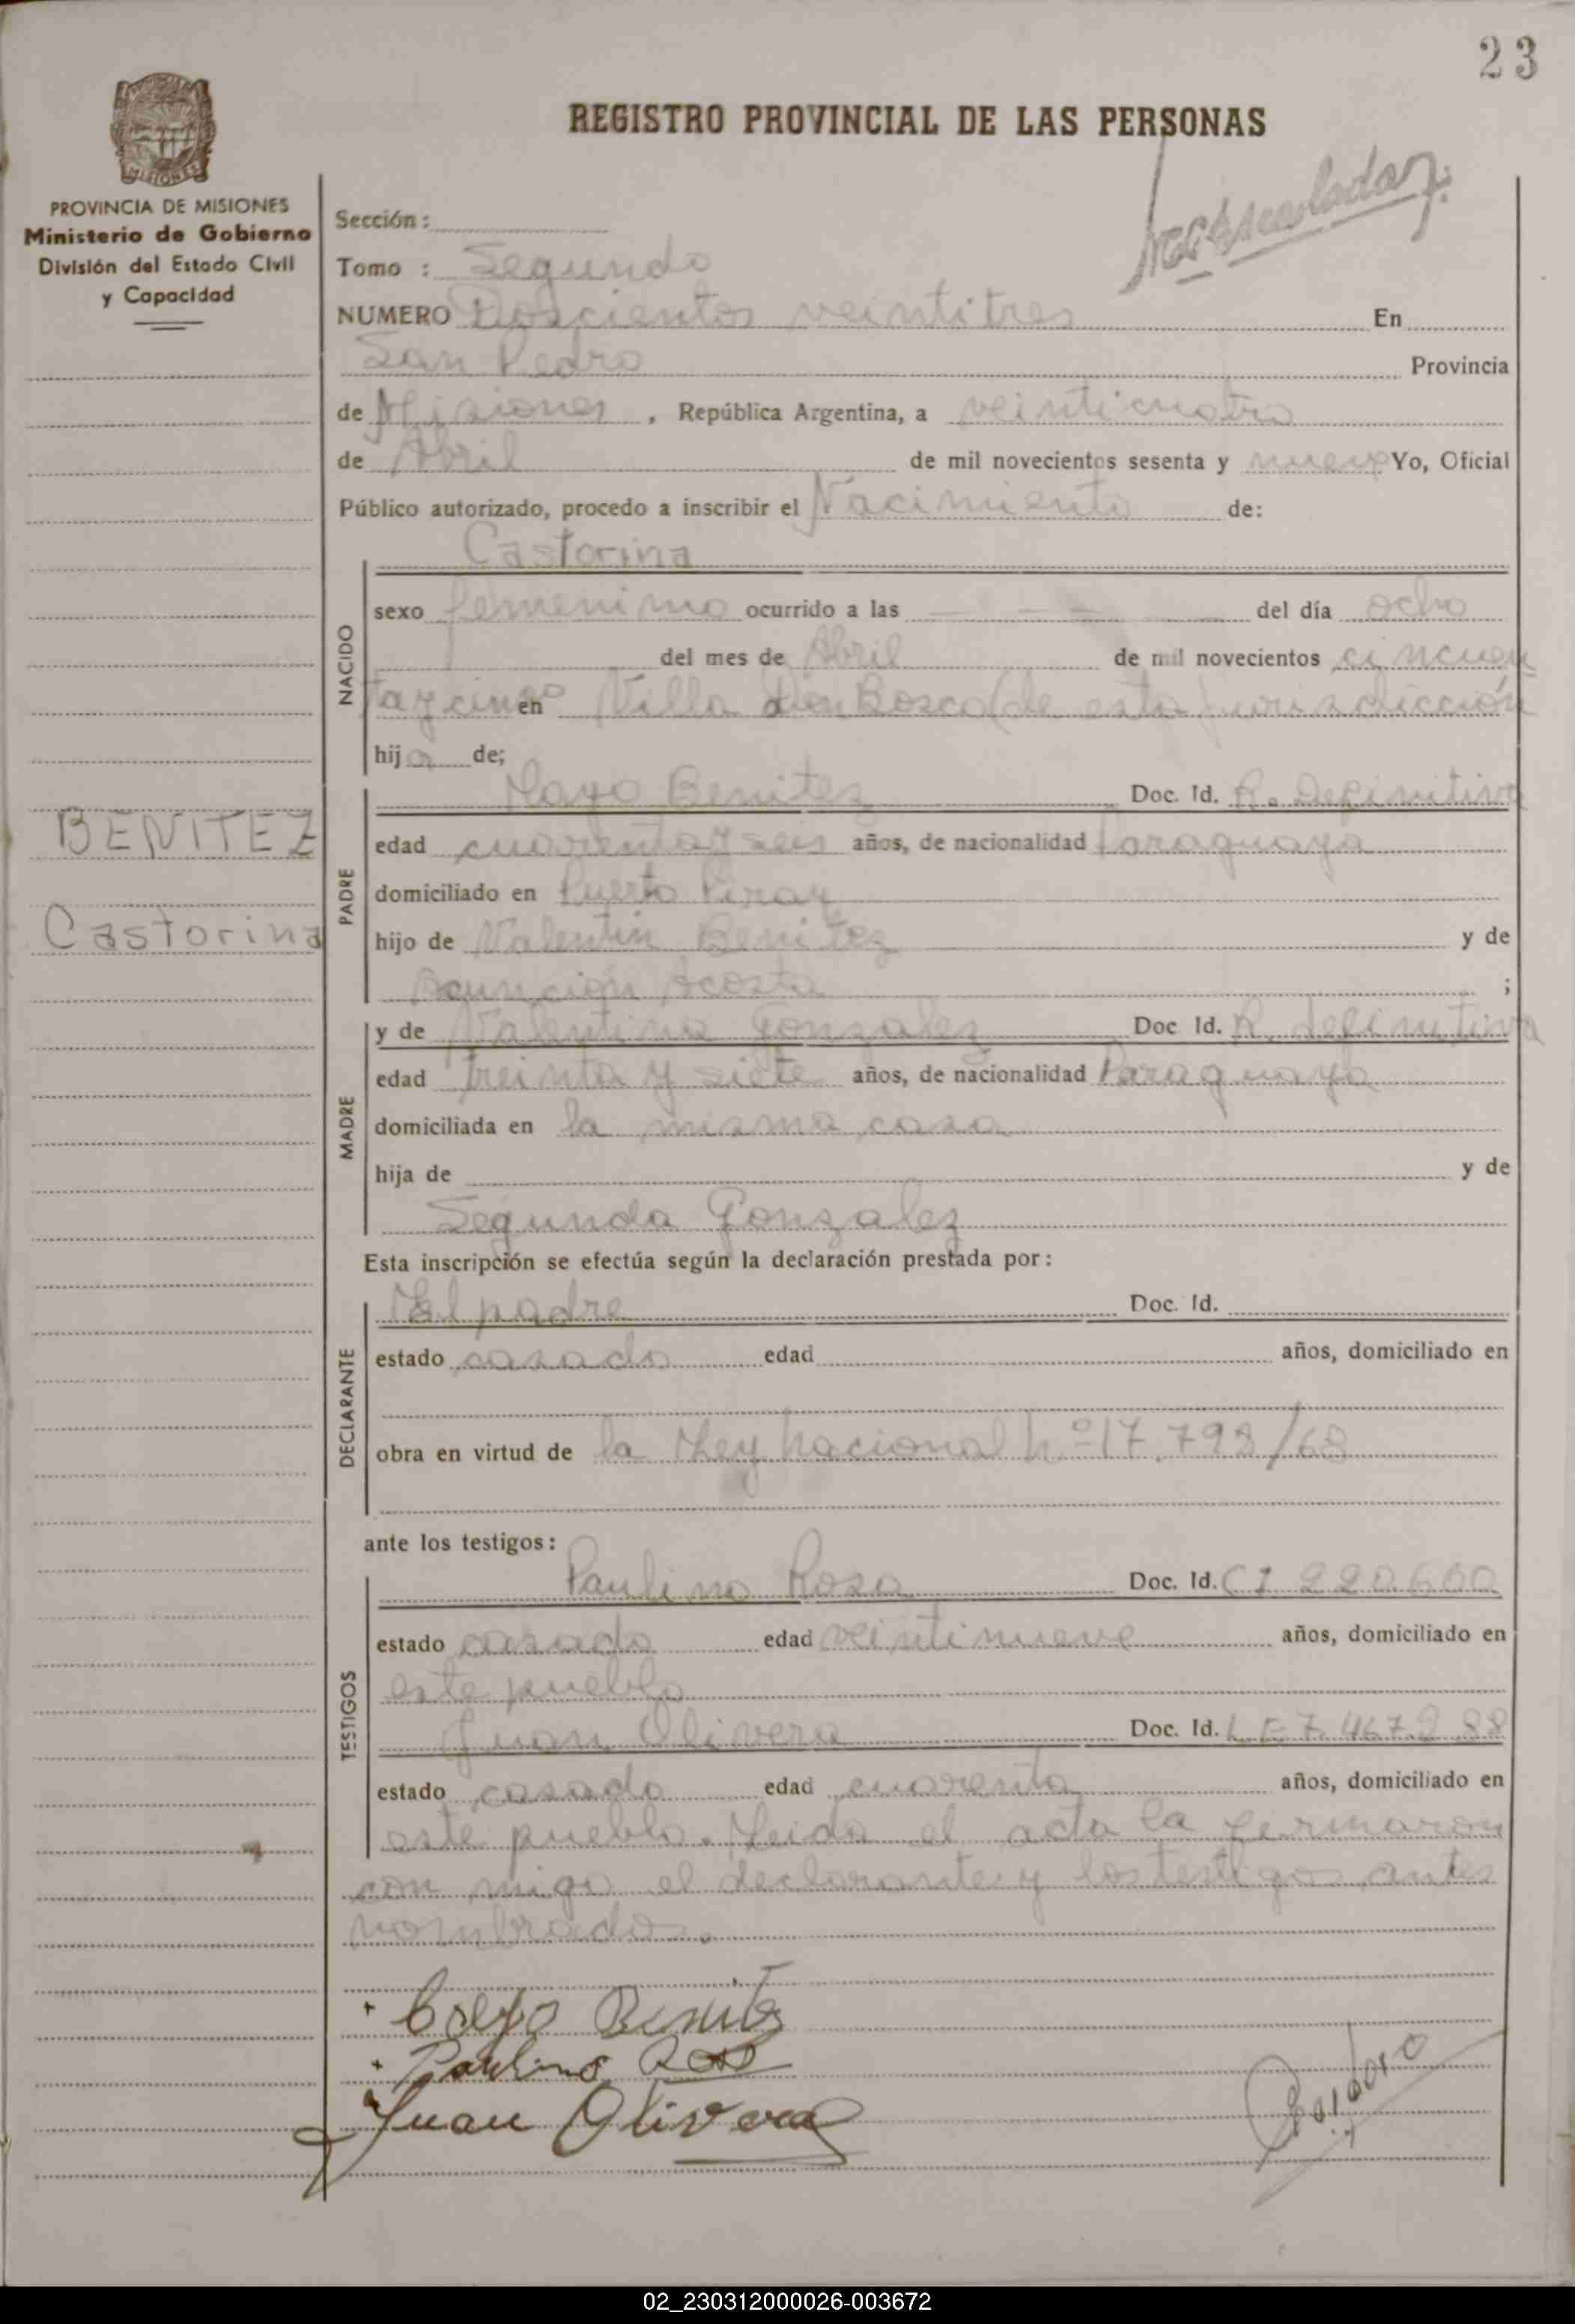 23
REGISTRO PROVINCIAL DE LAS PERSONAS
MISIONES
PROVINCIA DE MISIONES
Ministerio de Gobierno
División del Estado Civil
y Capacidad
Sección:
Tomo : Segundo
NUMERO Doscientos veintitres En
San Pedro Provincia
de Misiones, República Argentina, a veinticuatro
de Abril de mil novecientos sesenta y nueve Yo, Oficial
Público autorizado, procedo a inscribir el Nacimiento de:
Castorina
NACIDO
sexo femenino ocurrido a las — — — del día ocho
del mes de Abril de mil novecientos cincuen
ta y cinco en Villa Don Bosco (de esta jurisdicción
hija de;
BENITEZ
Castorina
PADRE
Benitez Doc. Id. R. Definitiva
edad cuarenta y seis años, de nacionalidad Paraguaya
domiciliado en Puerto Piray
hijo de Valentin Benitez y de
Asunción Acosta ;
MADRE
y de Valentina Gonzalez Doc Id. R. definitiva
edad Treinta y siete años, de nacionalidad Paraguaya
domiciliada en la misma casa
hija de y de
Segunda Gonzalez
Esta inscripción se efectúa según la declaración prestada por:
DECLARANTE
El padre Doc. Id.
estado casado edad años, domiciliado en
obra en virtud de la Ley Nacional Nº 17.798/68
ante los testigos:
TESTIGOS
Paulino Rosa Doc. Id. CI 220.600
estado casado edad veintinueve años, domiciliado en
este pueblo
Juan Olivera Doc. Id. L E 7.467.288
estado casado edad cuarenta años, domiciliado en
este pueblo. Leida el acta la firmaron
con migo el declarante y los testigos antes
nombrados.
Benitez
Paulino Rosa
Juan Olivera
02_230312000026-003672